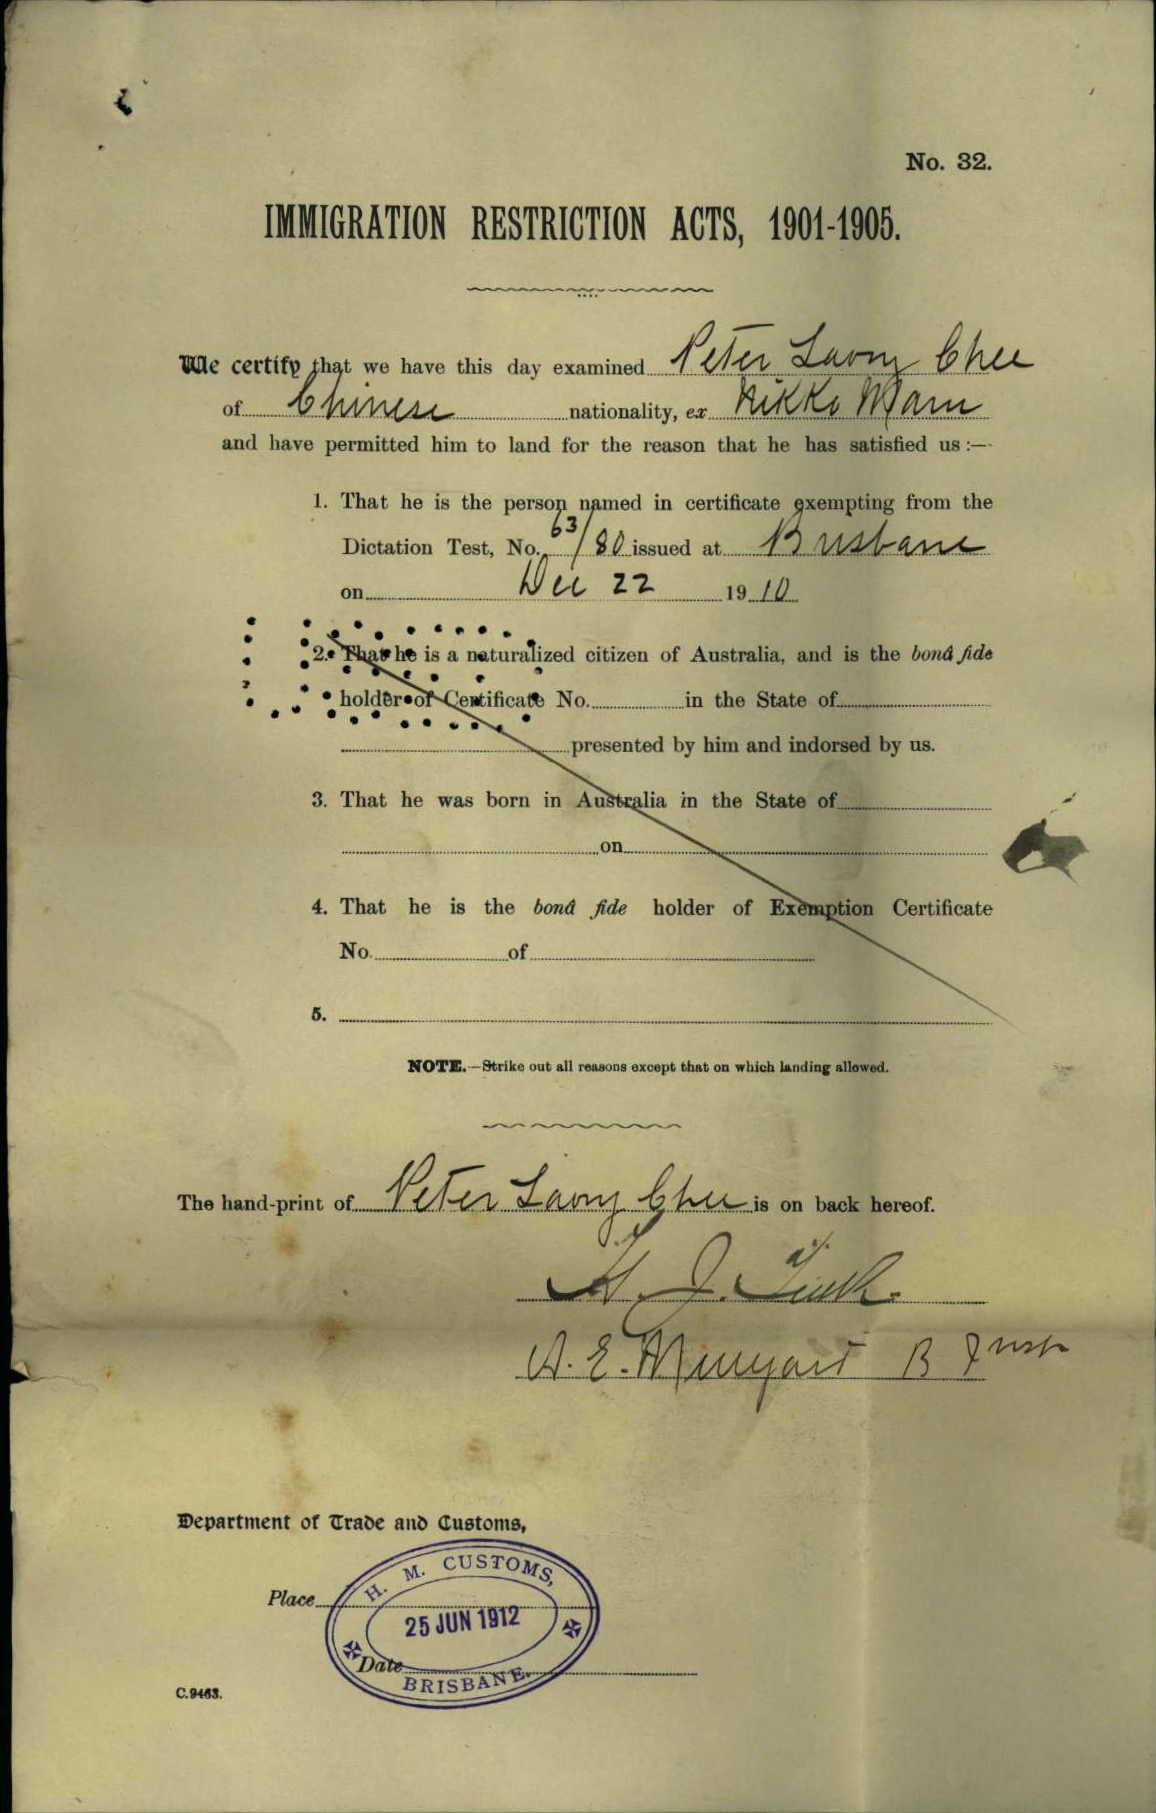 No. 32.
IMMIGRATION RESTRICTION ACTS, 1901-1905.
We certify that we have this day examined Peter Lavny Chee
of Chinese nationality, ex Nikko Maru
and have permitted him to land for the reason that he has satisfied us:—
1. That he is the person named in certificate exempting from the
Dictation Test, No. 63/80 issued at Brisbane
on Dec 22 1910
2. That he is a naturalized citizen of Australia, and is the bonâ fide
holder of Certificate No. in the State of
presented by him and indorsed by us.
3. That he was born in Australia in the State of
on
4. That he is the bonâ fide holder of Exemption Certificate
No. of
5.
NOTE.—Strike out all reasons except that on which landing allowed.
The hand-print of Peter Lavny Chee is on back hereof.
H. J.
A. E. B
Department of Trade and Customs,
H. M. CUSTOMS,
Place
25 JUN 1912
Date
BRISBANE.
C.9463.